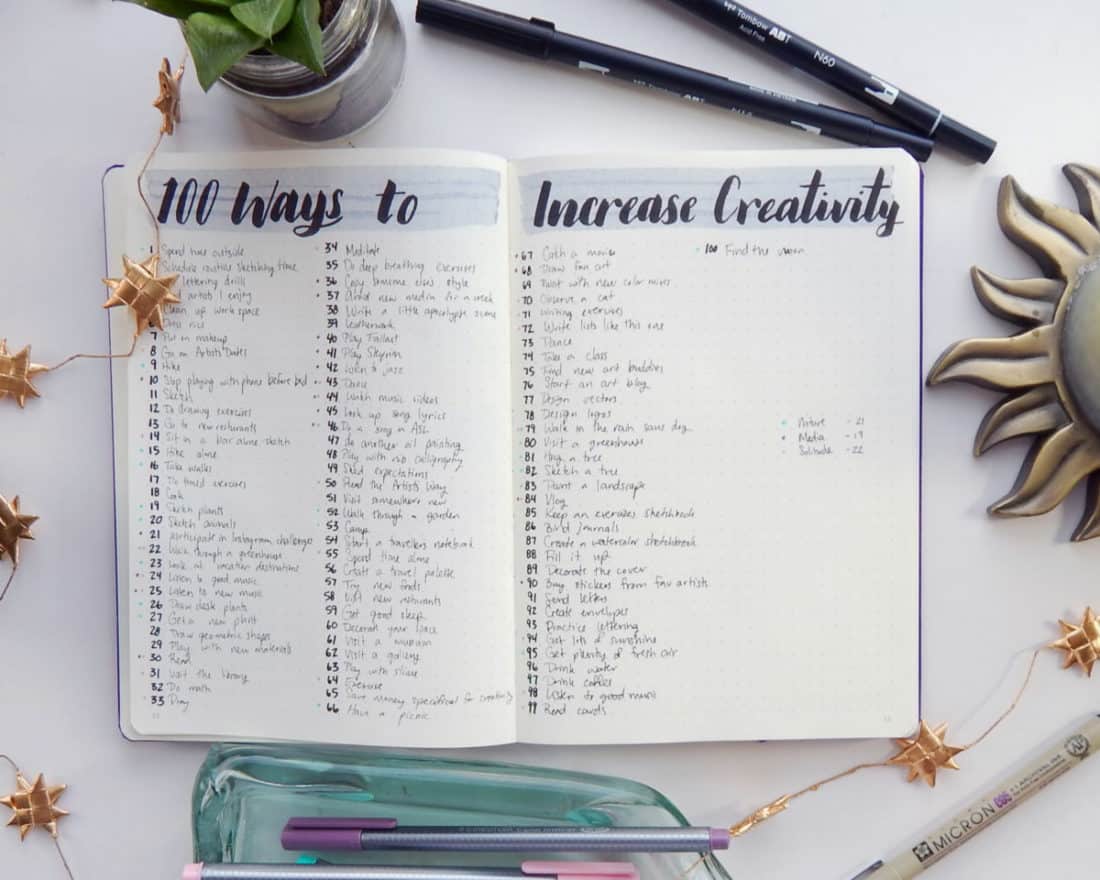 Tombow ABT
Acid Free
N60
100 Ways to
1 Spend time outside
Schedule routine sketching time
lettering drills
artists I enjoy
Clean up work space
6
7 Put on makeup
8 Go on Artists Dates
9 Hike
10 Stop playing with phone before bed
11 Sketch
12 Do drawing exercises
13 Go to new restaurants
14 Sit in a bar alone sketch
15 Hike alone
16 Take walks
17 Do timed exercises
18 Cook
19 Sketch plants
20 Sketch animals
21 Participate in Instagram challenges
22 Walk through a greenhouse
23 Look at vacation destinations
24 Listen to good music
25 Listen to new music
26 Draw desk plants
27 Get a new plant
28 Draw geometric shapes
29 Play with new materials
30 Read
31 Visit the library
32 Do math
33 Pray
34 Meditate
35 Do deep breathing exercises
36 Copy someone elses style
37 new medium for a week
38 Write a little apocalypse scene
39 Leatherwork
40 Play Fallout
41 Play Skyrim
42 Listen to jazz
43 Dance
44 Watch music videos
45 Look up song lyrics
46 Do a song in ASL
47 do another oil painting
48 Play with nib calligraphy
49 Shed expectations
50 Read the Artists Way
51 Visit somewhere new
52 Walk through a garden
53 Camp
54 Start a travelers notebook
55 Spend time alone
56 Create a travel palette
57 Try new foods
58 Visit new resturants
59 Get good sleep
60 Decorate your space
61 Visit a museum
62 Visit a gallery
63 Play with slime
64 Exercise
65 Save money specifical for creativity
66 Have a picnic
Increase Creativity
67 Catch a movie
68 Draw fan art
69 Paint with new color mixes
70 Observe a cat
71 Writing exercises
72 Write lists like this one
73 Dance
74 Take a class
75 Find new art buddies
76 Start an art blog
77 Design vectors
78 Design logos
79 Walk in the rain sans dog
80 Visit a greenhouse
81 Hug a tree
82 Sketch a tree
83 Paint a landscape
84 Vlog
85 Keep an everyday sketchbook
86 Build journals
87 Create a watercolor sketchbook
88 Fill it up
89 Decorate the cover
90 Buy stickers from fav artists
91 Send letters
92 Create envelopes
93 Practice lettering
94 Get lots of sunshine
95 Get plenty of fresh air
96 Drink water
97 Drink coffee
98 Listen to good music
99 Read comics
100 Find the moon
Nature - 21
Media - 19
Solitude - 22
MICRON 005